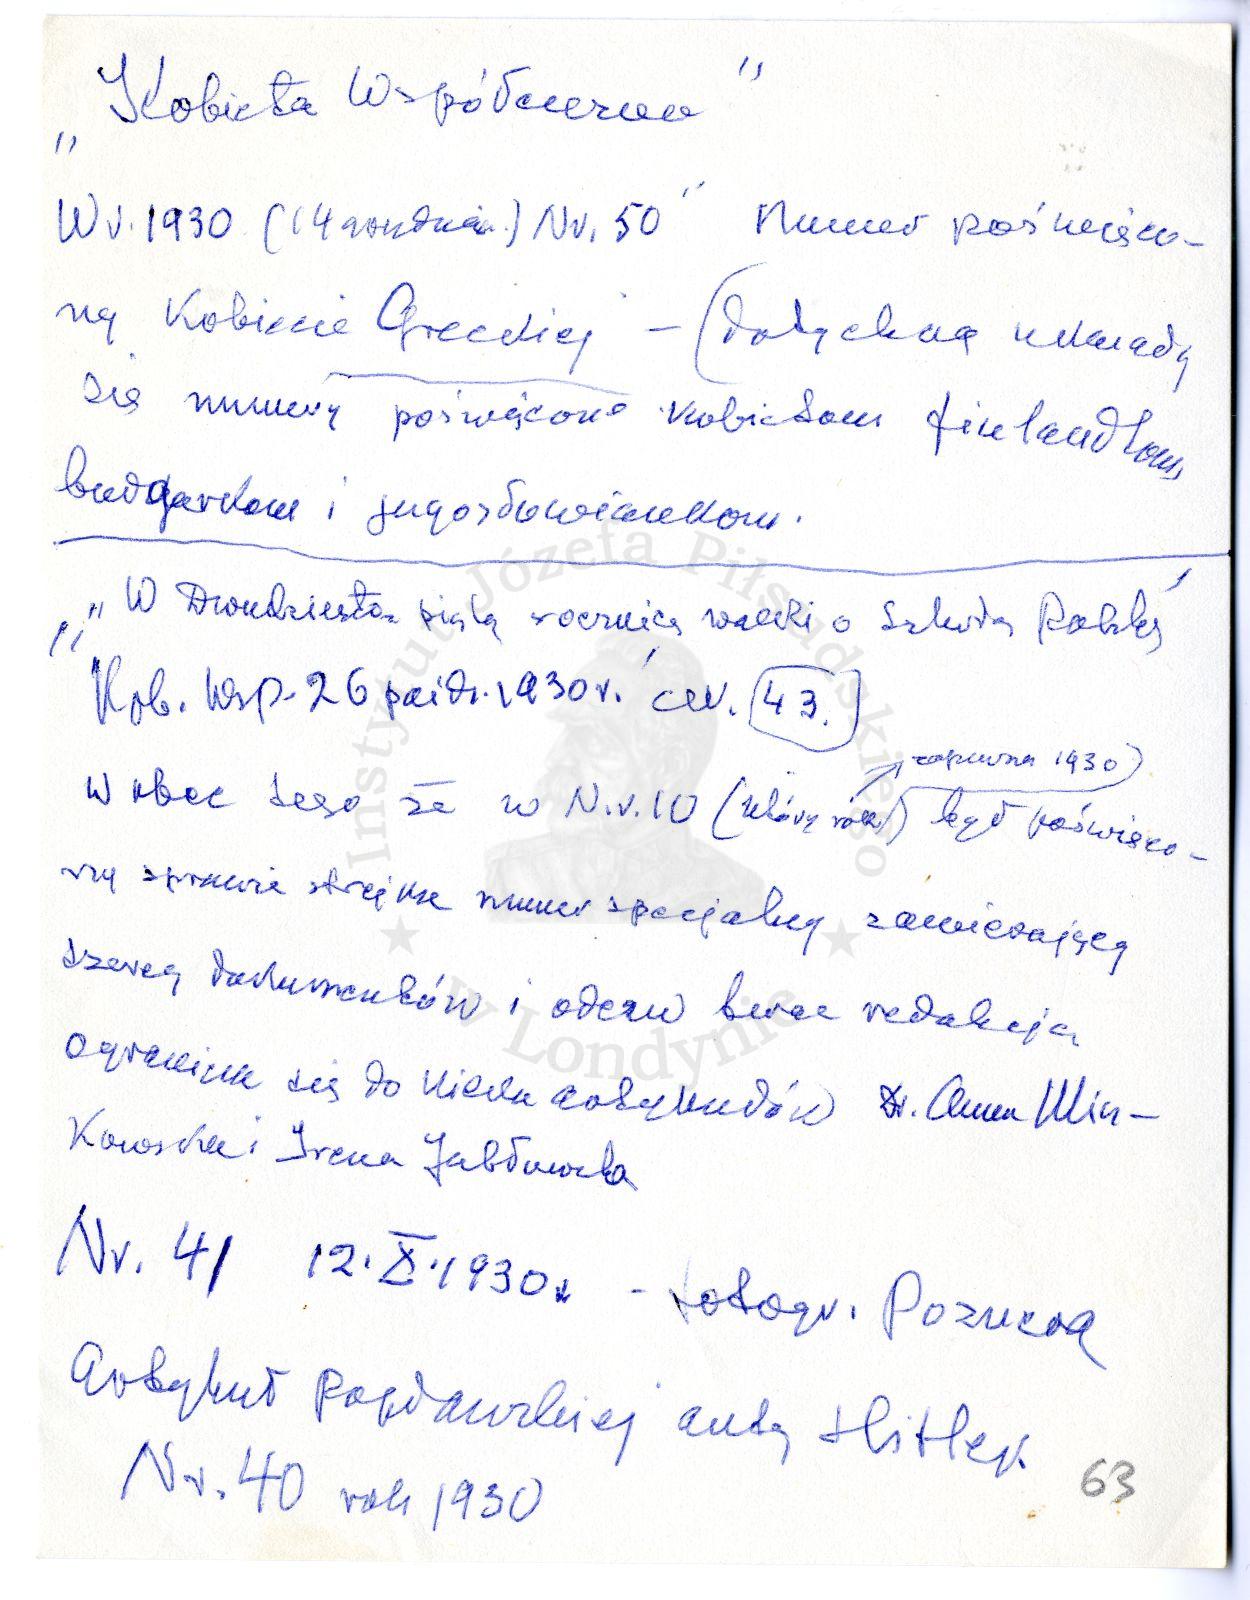 „Kobieta Współczesna"
W r. 1930 (14 grudnia) Nr. 50 Numer poświęco-
ny Kobiecie Greckiej – (dotychczas ukazały
się numery poświęcone kobietom finlandkom,
bułgarkom i jugosłowiankom.
„W Dwudziestą piątą rocznicę walki o Szkołę Polską"
Kob. Wsp. 26 paźdz. 1930 r. 43.
zapewne 1930)
wobec tego że w Nr. 10 (który rok) był poświęco-
ny sprawie strejku numer specjalny zawierający
szereg dokumentów i odezw redakcja
ogranicza się do kilku artykułów Dr. Anna Min-
kowska i Irena Jabłowska
Nr. 41 12.X.1930r. – fotogr.
artykuł anty Hitler.
Nr. 40 rok 1930
63
Instytut Józefa Piłsudskiego
w Londynie